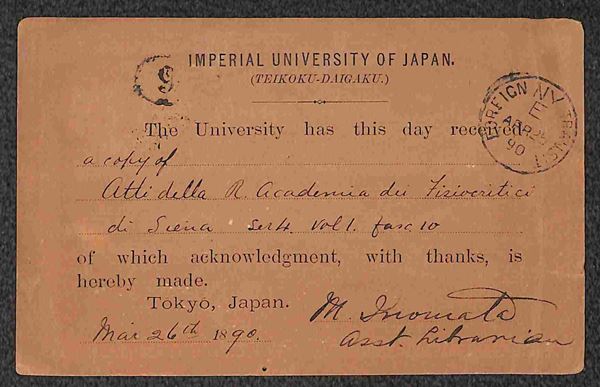 IMPERIAL UNIVERSITY OF JAPAN.
(TEIKOKU-DAIGAKU.)
9
FOREIGN NY TRANSIT
E
APR
90
The University has this day received
a copy of
Atti della R. Academia dei Fisiocritici
di Siena ser 4. vol 1. fasc. 10
of which acknowledgment, with thanks, is
hereby made.
Tokyo, Japan.
Mar 26th 1890.
M. Inomata
Asst. Librarian